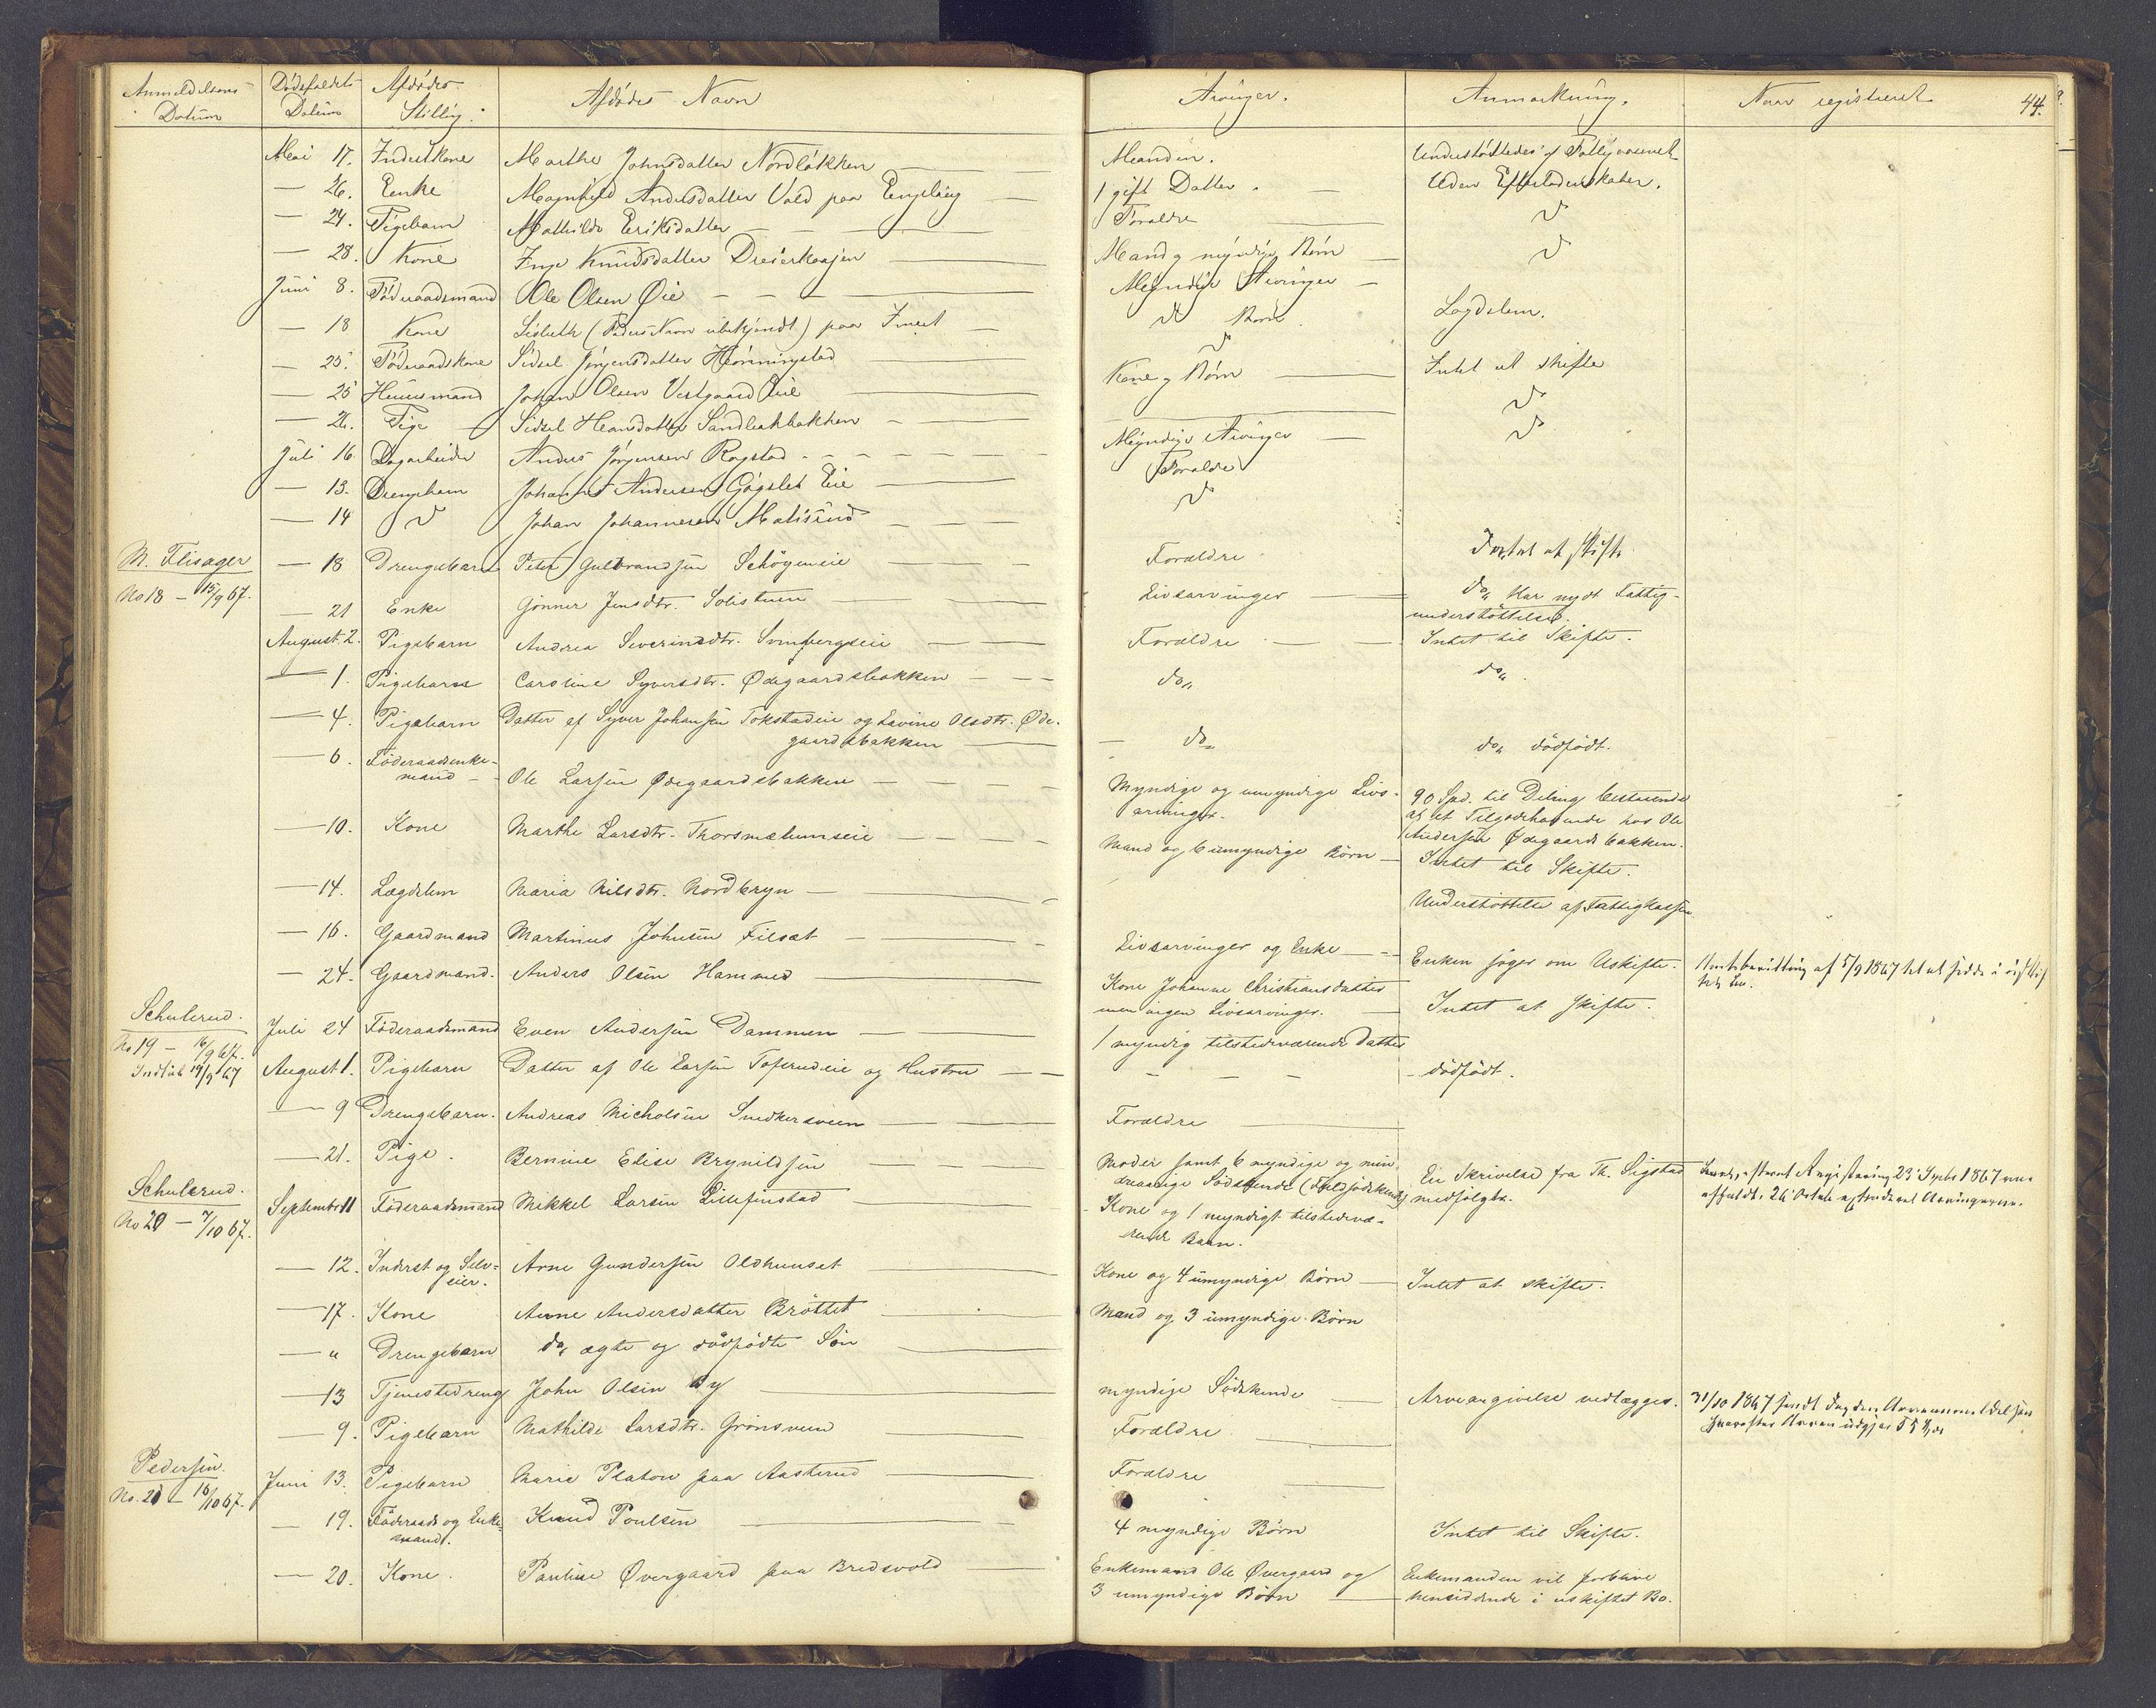 Anmeldelsens Datum | Dödsfaldets Datum | Afdödes Stilling. | Afdödes Navn | Arvinger. | Anmærkning. | Naar registreret | 44.
Mai 17. Inderstkone Marthe Johnsdatter Nordløkken Manden. Understøttedes af Fattigvæsenet
— 26. Enke Magnhild Andersdatter Vold paa Englaug 1 gift Datter. Uden Efterladenskaber.
— 24. Pigebarn Mathilde Eriksdatter Forældre do
— 28. Kone Inge Knudsdatter Mand og myndige Børn do
Juni 8. Föderaadsmand Ole Olsen Øie Myndige Arvinger
— 18 Kone Lisbeth (Faders Navn ubekjendt) paa do Børn. Lægdslem.
— 25. Föderaadskone Sidsel Jørgensdatter Hemingstad do
— 25 Huusmand Johan Olsen Vestgaard Eie Kone og Børn Intet at skifte
— 26. Pige Sidsel Hansdatter Sandbakken do
Juli 16 Dagarbeider Anders Jörgensen Rogstad Myndige Arvinger do
— 13. Drengebarn Johannes Andersen Eie Forældre
— 14 do Johan Johannesen do
M. Flisager — 18 Drengebarn Peter Gulbrandsen Schögeneie Forældre Intet at skifte
No 18 — 15/9 67.
— 21 Enke Gönner Jensdtr. Solistuen Livsarvinger do Har nydt Fattig-
understöttelse.
August. 2. Pigebarn Andrea Severinsdtr. Svinbergseie Forældre Intet til Skifte.
— 1. Pigebarn Caroline Syversdtr. Ødegaardsbakken do do.
— 4. Pigebarn Datter af Syver Johansen Tokstadeie og Lovine Olsdtr. Øde-
gaardsbakken — do do dödfödt.
— 6. Föderaadsenke-
mand — Ole Larsen Ødegaardsbakken Myndige og umyndige Livs-
arvinger. 90 Spd. til Deling bestaaende
af et Tilgodehavende hos Ole
Andersen Ødegaardsbakken.
— 10. Kone Marthe Larsdtr. Thorsmæhumseie Mand og 6 umyndige Børn — Intet til Skifte.
— 14. Lægdslem Maria Nilsdtr. Nordbryn Understöttelse af Fattigkassen
— 16. Gaardmand Martinus Johnsen Filset Livsarvinger og Enke Enken söger om Uskifte. Amtsbevilling af 5/9 1867 til at sidde i uskiftet Bo.
— 24. Gaardmand. Anders Olsen Hammed Kone Johanne Christiansdatter
men ingen Livsarvinger. Intet at skifte.
Schulerud. Juli 24 Föderaadsmand Even Andersen Dammen 1 myndig tilstedeværende Datter
No 19 — 16/9 67.
Indløb 19/9 67 August 1. Pigebarn Datter af Ole Larsen Tofsrudeie og Hustru — dödfödt.
— 9 Drengebarn. Andreas Micholsen Snedkersveen Forældre
— 21. Pige. Bernine Elise Brynildsen Moder samt 6 myndige og min-
dreaarige Södskende (Helsödskende) En Skrivelse fra Th. Sigstad
medfölger. Registrering 23 Septr 1867
Schulerud. Septembr 11 Föderaadsmand Mikkel Larsen Lillefinstad Kone og 1 myndigt tilstedevæ-
rende Barn.
No 20 — 7/10 67.
— 12. Inderst og Selv-
eier. Arne Gundersen Oldhuuset Kone og 4 umyndige Børn — Intet at skifte.
— 17. Kone Anne Andersdatter Bröttet Mand og 3 umyndige Børn
— " Drengebarn do, ægte og dödfödte Sön
— 13 Tjenestedreng John Olsen By myndige Södskende Arveangivelse vedlægges. 31/10 1867
— 9. Pigebarn Mathilde Larsdtr. Grönsveen Forældre
Pedersen. Juni 13. Pigebarn Marie Platou paa Aasterud Forældre
No. 21 — 16/10 67.
— 19. Föderaads og Enke-
mand. Knud Poulsen 4 myndige Børn Intet til Skifte.
— 20. Kone. Pauline Øvergaard paa Bredvold Enkemand Ole Øvergaard og
3 umyndige Børn Enkemanden vil forblive
hensiddende i uskiftet Bo.